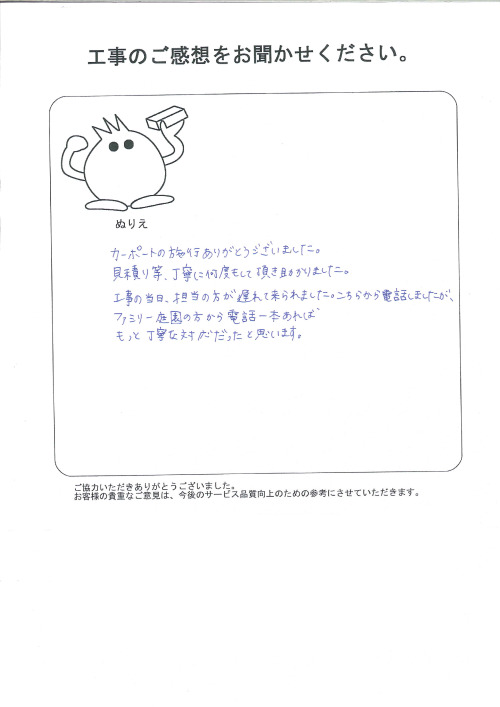 工事のご感想をお聞かせください。
ぬりえ
カーポートの施行ありがとうございました。
見積り等、丁寧に何度もして頂き助かりました。
工事の当日、担当の方が遅れて来られました。こちらから電話しましたが、
ファミリー庭園の方から電話一本あれば
もっと丁寧な対応だったと思います。
ご協力いただきありがとうございました。
お客様の貴重なご意見は、今後のサービス品質向上のための参考にさせていただきます。